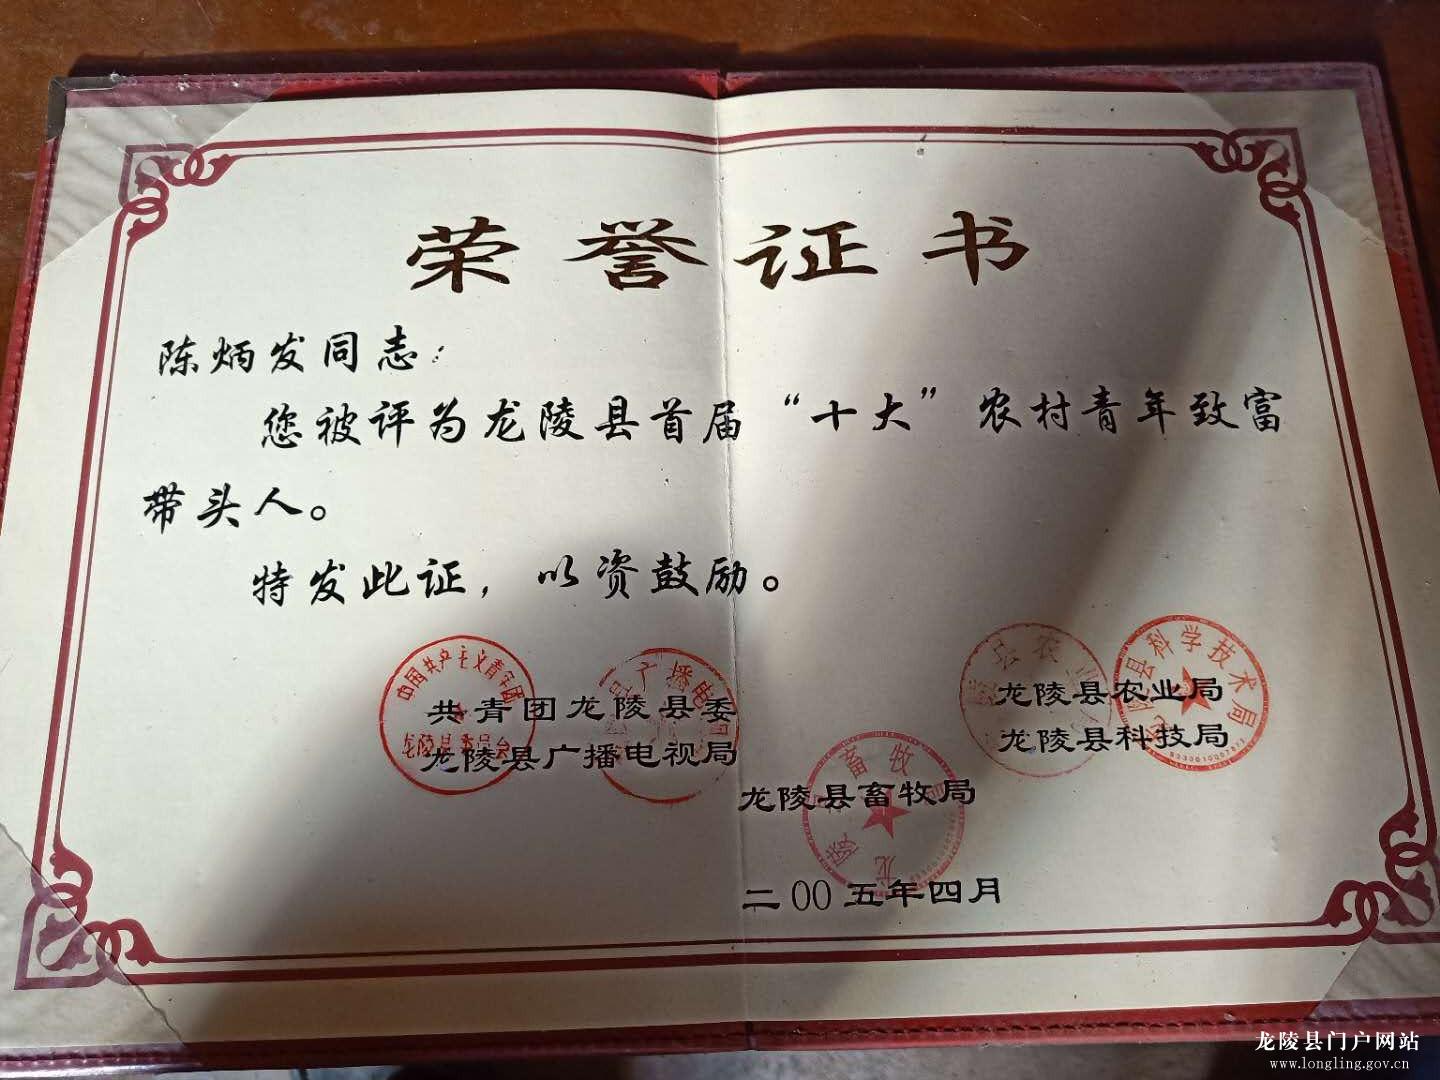 荣誉证书
陈炳发同志：
您被评为龙陵县首届“十大”农村青年致富
带头人。
特发此证，以资鼓励。
中国共产主义青年团
龙陵县委员会
共青团龙陵县委
龙陵县广播电视局
广播电
龙陵县农业局
龙陵县科技局
县科学技术局
龙陵县畜牧局
畜牧
二00五年四月
龙陵县门户网站
www.longling.gov.cn